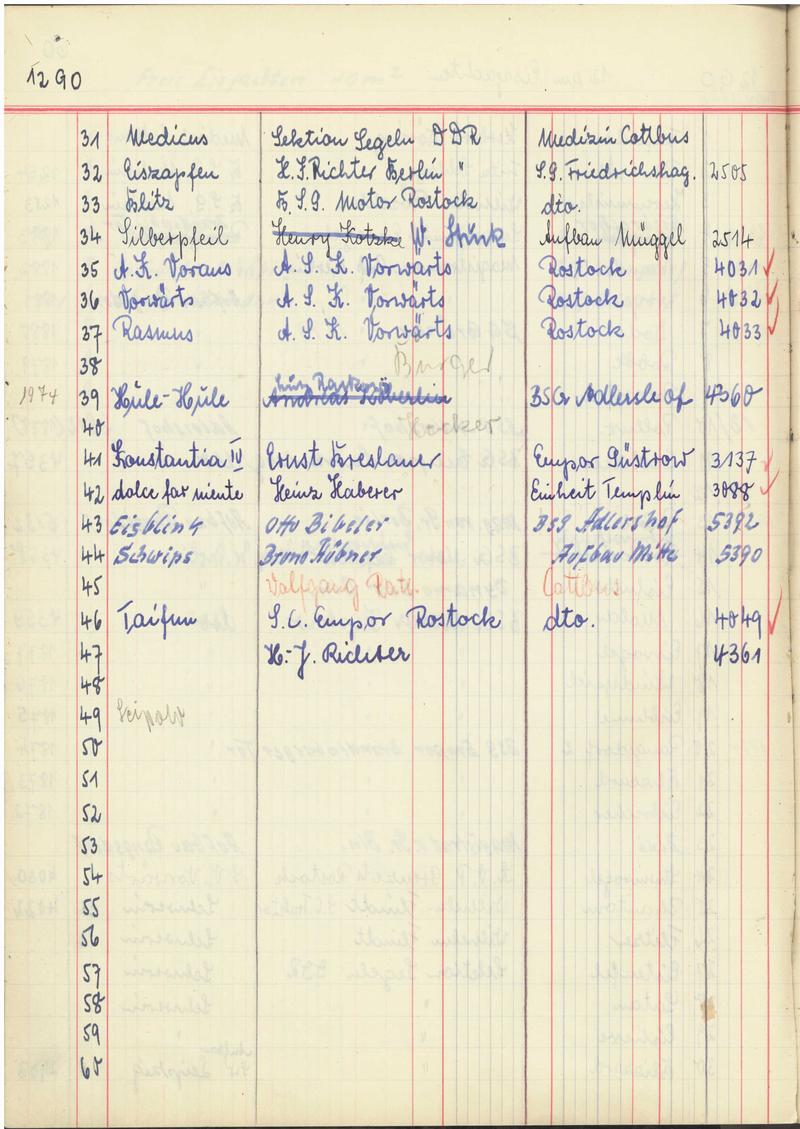 1290
31 Medicus Sektion Segeln DDR Medizin Cottbus
32 Eiszapfen H.J. Richter Berlin " S.G. Friedrichshag. 2505
33 Blitz B.S.G. Motor Rostock dto.
34 Silberpfeil Henry Kotzke W. Stück Aufbau Müggel 2514
35 A.K. Voraus A.S.K. Vorwärts Rostock 4031
36 Vorwärts A.S.K. Vorwärts Rostock 4032
37 Rasmus A.S.K. Vorwärts Rostock 4033
38 Burger
1974 39 Hüle-Hüle BSG Adlershof 4360
40
41 Konstantia IV Ernst Breslauer Empor Güstrow 3137
42 dolce far niente Heinz Haberer Einheit Templin 3088
43 Eisblink Otto Bibeler BSG Adlershof 5392
44 Schwips Bruno Hübner Aufbau Mitte 5390
45 Wolfgang Cottbus
46 Taifun S.C. Empor Rostock dto. 4049
47 H.-J. Richter 4361
48
49 Leipold
50
51
52
53
54
55
56
57
58
59
60